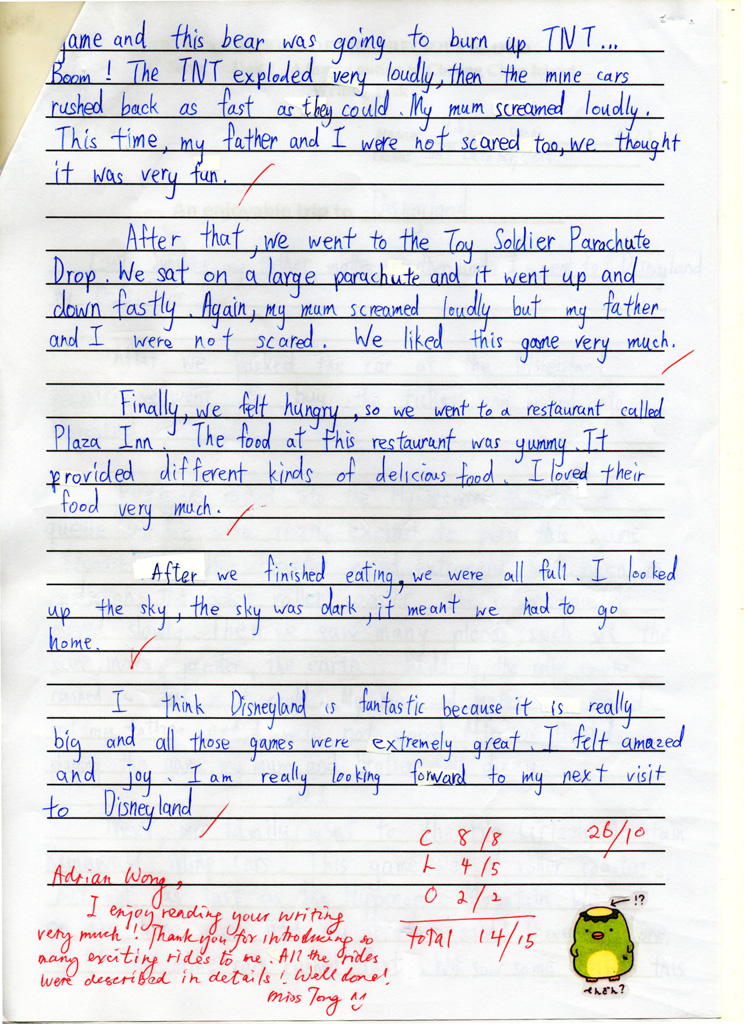 game and this bear was going to burn up TNT...
Boom ! The TNT exploded very loudly, then the mine cars
rushed back as fast as they could. My mum screamed loudly.
This time, my father and I were not scared too, we thought
it was very fun.
After that, we went to the Toy Soldier Parachute
Drop. We sat on a large parachute and it went up and
down fastly. Again, my mum screamed loudly but my father
and I were not scared. We liked this game very much.
Finally, we felt hungry, so we went to a restaurant called
Plaza Inn. The food at this restaurant was yummy. It
provided different kinds of delicious food. I loved their
food very much.
After we finished eating, we were all full. I looked
up the sky, the sky was dark, it meant we had to go
home.
I think Disneyland is fantastic because it is really
big and all those games were extremely great. I felt amazed
and joy. I am really looking forward to my next visit
to Disneyland
C 8/8 26/10
L 4/5
O 2/2
total 14/15
Adrian Wong,
I enjoy reading your writing
very much!! Thank you for introducing so
many exciting rides to me. All the rides
were described in details! Well done!
Miss Tong
!?
ぺんぎん?